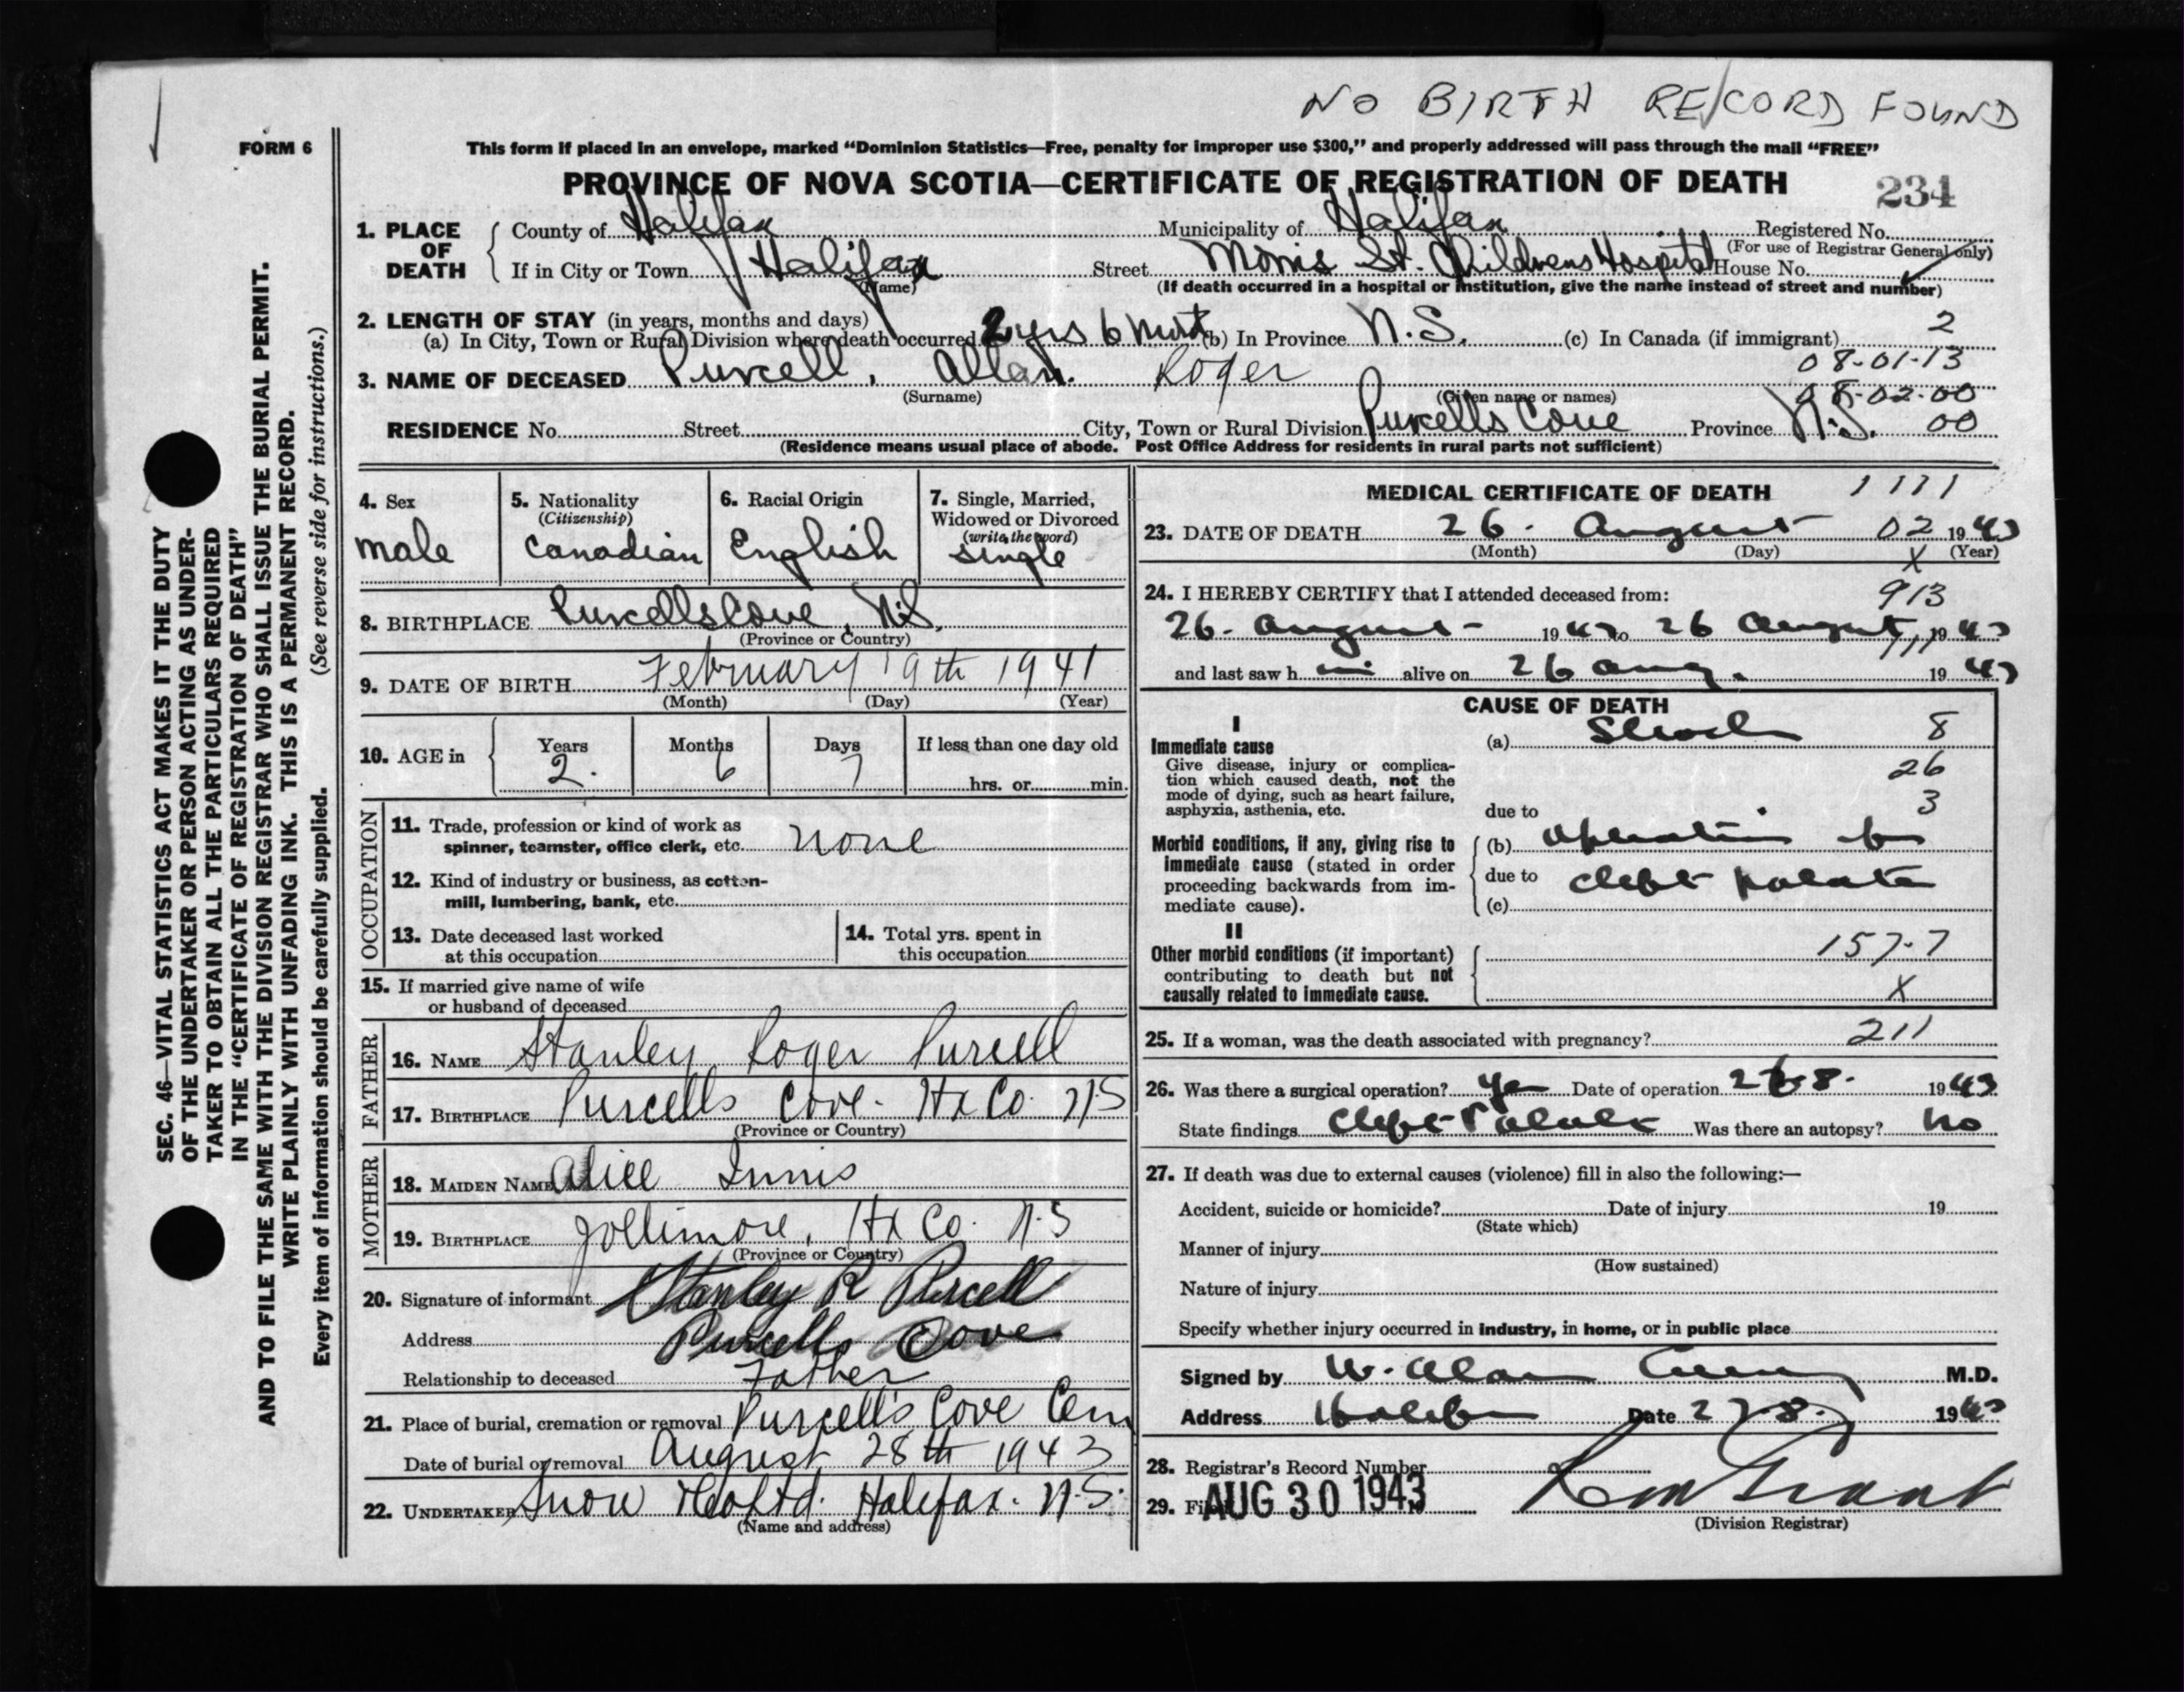 NO BIRTH RECORD FOUND
FORM 6
This form if placed in an envelope, marked “Dominion Statistics—Free, penalty for improper use $300,” and properly addressed will pass through the mail “FREE”
PROVINCE OF NOVA SCOTIA—CERTIFICATE OF REGISTRATION OF DEATH 234
1. PLACE OF DEATH County of Halifax Municipality of Halifax Registered No.
(For use of Registrar General only)
If in City or Town Halifax Street Morris St. Childrens Hospital House No.
(Name) (If death occurred in a hospital or institution, give the name instead of street and number)
2. LENGTH OF STAY (in years, months and days)
(a) In City, Town or Rural Division where death occurred 2 yrs 6 (b) In Province N.S. (c) In Canada (if immigrant) 2
08-01-13
3. NAME OF DECEASED Purcell, Allan. Roger
(Surname) (Given name or names) 08-02-00
RESIDENCE No. Street City, Town or Rural Division Purcells Cove Province N.S. 00
(Residence means usual place of abode. Post Office Address for residents in rural parts not sufficient)
4. Sex
male
5. Nationality
(Citizenship)
Canadian
6. Racial Origin
English
7. Single, Married,
Widowed or Divorced
(write the word)
single
8. BIRTHPLACE Purcells Cove, N.S.
(Province or Country)
9. DATE OF BIRTH February 19th 1941
(Month) (Day) (Year)
10. AGE in Years Months Days If less than one day old
2. 6 7 hrs. or min.
OCCUPATION
11. Trade, profession or kind of work as
spinner, teamster, office clerk, etc. none
12. Kind of industry or business, as cotton-
mill, lumbering, bank, etc.
13. Date deceased last worked
at this occupation
14. Total yrs. spent in
this occupation
15. If married give name of wife
or husband of deceased
FATHER
16. NAME Stanley Roger Purcell
17. BIRTHPLACE Purcells Cove. Hx Co. N.S
(Province or Country)
MOTHER
18. MAIDEN NAME Alice Innis
19. BIRTHPLACE Jollimore, Hx Co. N.S
(Province or Country)
20. Signature of informant Stanley R Purcell
Address Purcells Cove
Relationship to deceased Father
21. Place of burial, cremation or removal Purcell's Cove Cem
Date of burial or removal August 28th 1943
22. UNDERTAKER Snow & Co Ltd. Halifax. N.S.
(Name and address)
MEDICAL CERTIFICATE OF DEATH 1111
23. DATE OF DEATH 26. August 02 1943
(Month) (Day) X (Year)
24. I HEREBY CERTIFY that I attended deceased from: 913
26. August 1943 to 26 August, 1943
111
and last saw h im alive on 26 Aug. 1943
CAUSE OF DEATH
I
Immediate cause
Give disease, injury or complica-
tion which caused death, not the
mode of dying, such as heart failure,
asphyxia, asthenia, etc.
(a) Shock 8
26
due to 3
Morbid conditions, if any, giving rise to
immediate cause (stated in order
proceeding backwards from im-
mediate cause).
(b) operation for
due to cleft palate
(c)
II
Other morbid conditions (if important)
contributing to death but not
causally related to immediate cause.
157.7
X
25. If a woman, was the death associated with pregnancy? 211
26. Was there a surgical operation? yes Date of operation 26-8- 1943
State findings Cleft Palate Was there an autopsy? no
27. If death was due to external causes (violence) fill in also the following:—
Accident, suicide or homicide? Date of injury 19
(State which)
Manner of injury
(How sustained)
Nature of injury
Specify whether injury occurred in industry, in home, or in public place
Signed by W. Alan Curry M.D.
Address Halifax Date 27-8- 1943
28. Registrar's Record Number
29. Filed AUG 30 1943
(Division Registrar)
SEC. 46—VITAL STATISTICS ACT MAKES IT THE DUTY
OF THE UNDERTAKER OR PERSON ACTING AS UNDER-
TAKER TO OBTAIN ALL THE PARTICULARS REQUIRED
IN THE “CERTIFICATE OF REGISTRATION OF DEATH”
AND TO FILE THE SAME WITH THE DIVISION REGISTRAR WHO SHALL ISSUE THE BURIAL PERMIT.
WRITE PLAINLY WITH UNFADING INK. THIS IS A PERMANENT RECORD.
Every item of information should be carefully supplied. (See reverse side for instructions.)